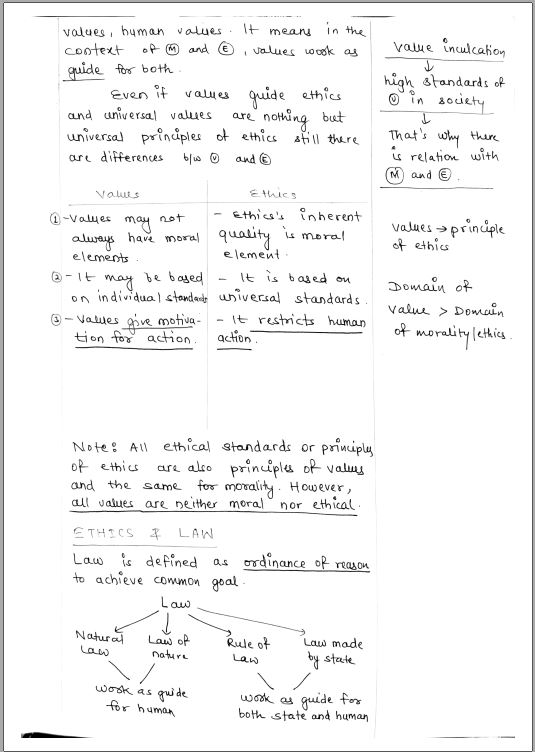 values, human values. It means in the
context of Ⓜ and Ⓔ, values work as
guide for both.
Even if values guide ethics
and universal values are nothing but
universal principles of ethics still there
are differences b/w Ⓥ and Ⓔ
Values Ethics
① - Values may not
always have moral
elements.
- Ethics's inherent
quality is moral
element.
② - It may be based
on individual standards
- It is based on
universal standards.
③ - Values give motiva-
tion for action.
- It restricts human
action.
Note: All ethical standards or principles
of ethics are also principles of values
and the same for morality. However,
all values are neither moral nor ethical.
ETHICS & LAW
Law is defined as ordinance of reason
to achieve common goal.
Law
Natural
Law
Law of
nature
Rule of
Law
Law made
by state
work as guide
for human
work as guide for
both state and human
Value inculcation
↓
high standards of
Ⓥ in society
↓
That's why there
is relation with
Ⓜ and Ⓔ.
values → principle
of ethics
Domain of
Value > Domain
of morality/ethics.